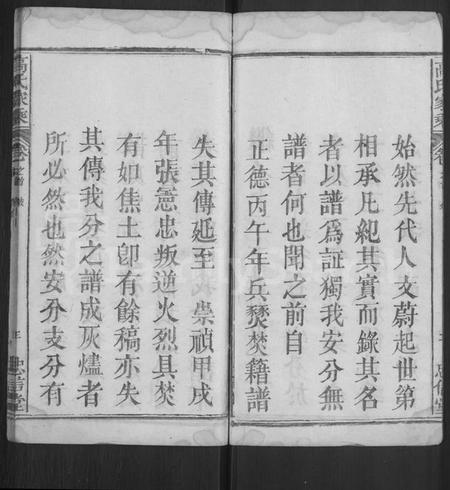 始然先代人文蔚起世第
相承凡紀其實而錄其名
者以譜爲証獨我安分無
譜者何也聞之前自
正德丙午年兵燹焚籍譜
失其傳延至 崇禎甲戌
年張憲忠叛逆火烈具焚
有如焦土卽有餘稿亦失
其傳我分之譜成灰燼者
所必然也然安分支分有
高氏家乘
卷
忠信堂